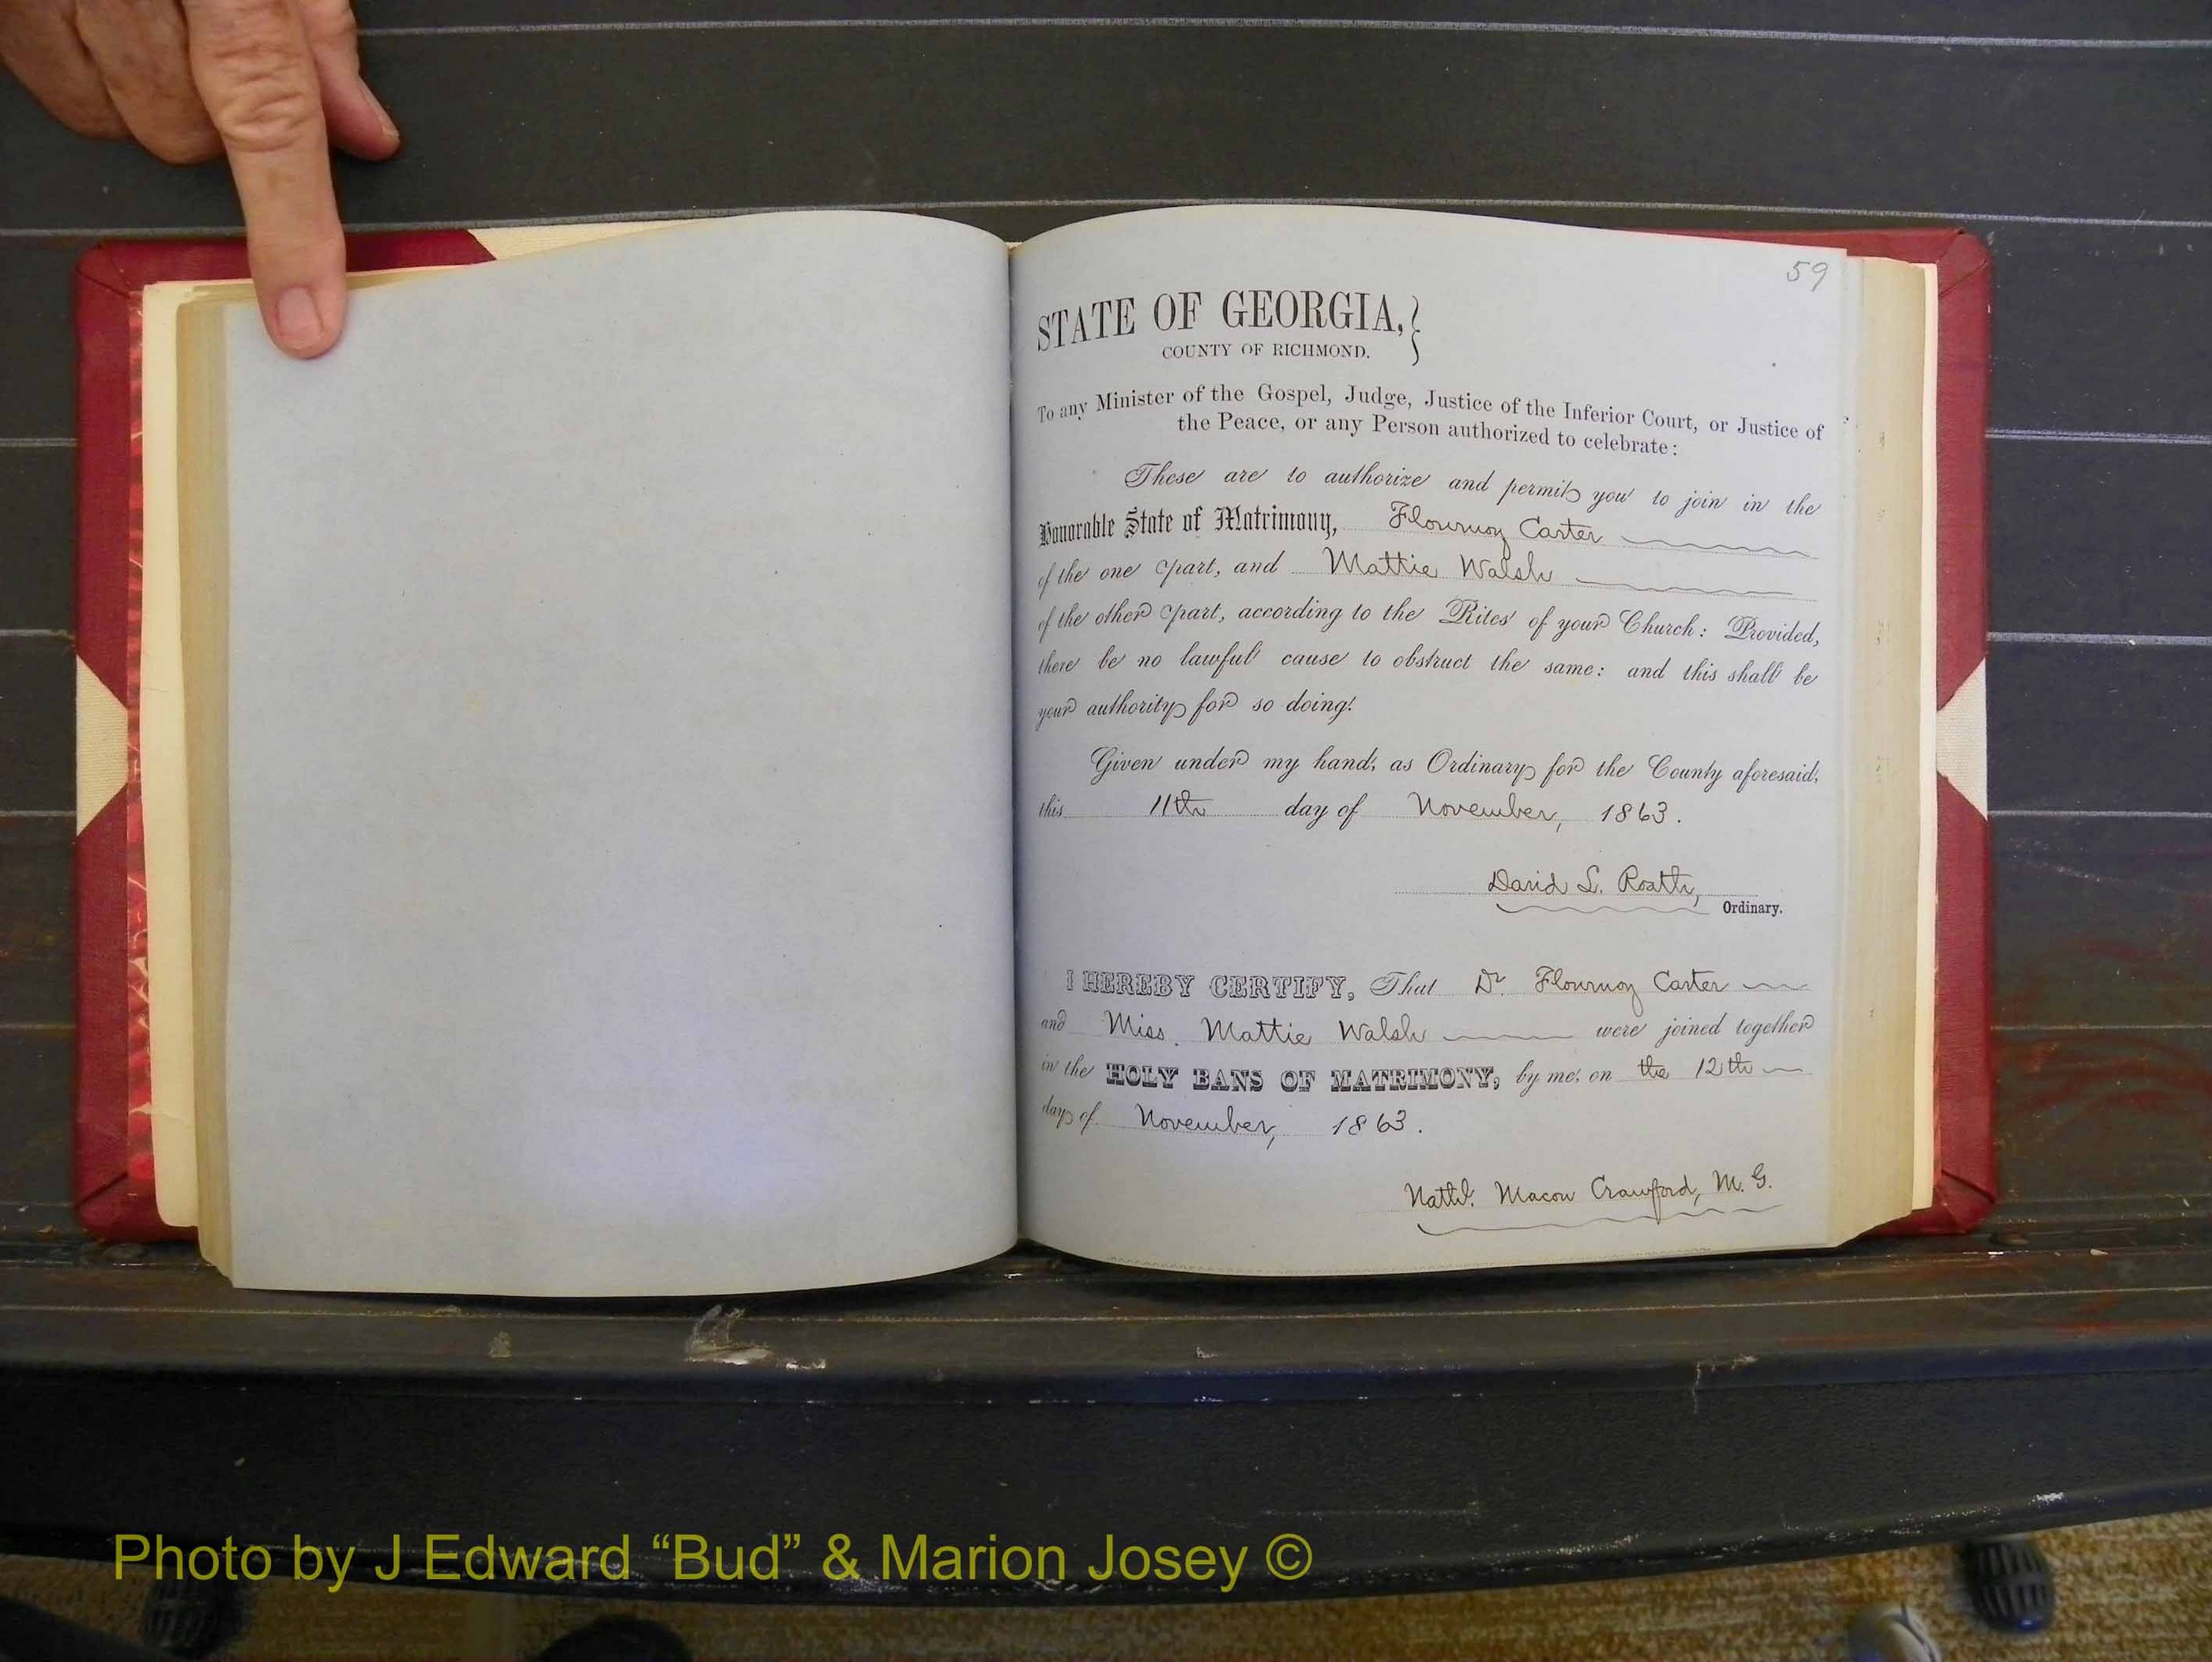 59
STATE OF GEORGIA,
COUNTY OF RICHMOND.
To any Minister of the Gospel, Judge, Justice of the Inferior Court, or Justice of
the Peace, or any Person authorized to celebrate:
These are to authorize and permit you to join in the
Honorable State of Matrimony, Flournoy Carter
of the one part, and Mattie Walsh
of the other part, according to the Rites of your Church: Provided,
there be no lawful cause to obstruct the same: and this shall be
your authority for so doing.
Given under my hand, as Ordinary for the County aforesaid,
this 11th day of November, 1863.
David L. Roath,
Ordinary.
I HEREBY CERTIFY, That Dr. Flournoy Carter
and Miss. Mattie Walsh were joined together
in the HOLY BANS OF MATRIMONY, by me, on the 12th
day of November, 1863.
Nathl. Macon Crawford, M. G.
Photo by J Edward “Bud” & Marion Josey ©